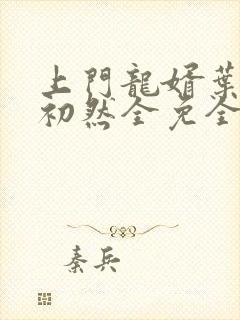 上門龍婿葉
初然全免全
秦兵